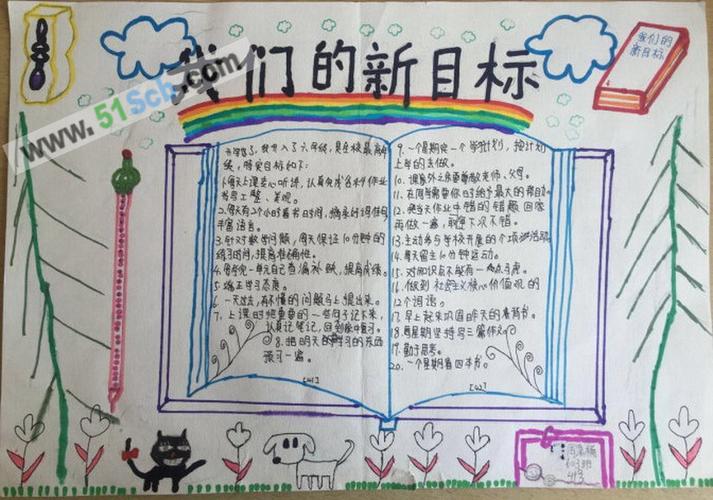 我们的新目标
www.51scb.com
我们的
新目标
开学了，我升入了六年级，是全校最高年
级，将实目标如下：
1.每天上课专心听讲，认真完成各来作业
书写工整、美观。
2.每天有2个小时看书时间，摘录好词佳句
丰富语言。
3.针对数学问题，每天保证10分钟的
练习时间，提高准确性。
4.每学完一单元自己查漏补缺，提高成绩。
5.端正学习态度。
6.一天过去，有不懂的问题马上提出来。
7.上课时把重要的一些句子记下来，
认真记笔记，回到家中复习。
8.把明天的学习的东西
预习一遍。
[41]
9.一个星期定一个学习计划，按计划
上的去做。
10.课余外之余要尊敬老师、父母。
11.在同学需要你时给予最大的帮助。
12.把当天作业中错的错题回家
再做一遍，取得下次不错。
13.主动参与学校开展的个项活动。
14.每天留主10分钟运动。
15.对知识点不能有一点马虎。
16.做到社会主义核心价值观的
12个词语。
17.早上起来巩固昨天的要背书
18.每星期坚持写三篇作文。
19.勤于思考。
20.一个星期看四本书。
[42]
603班
43